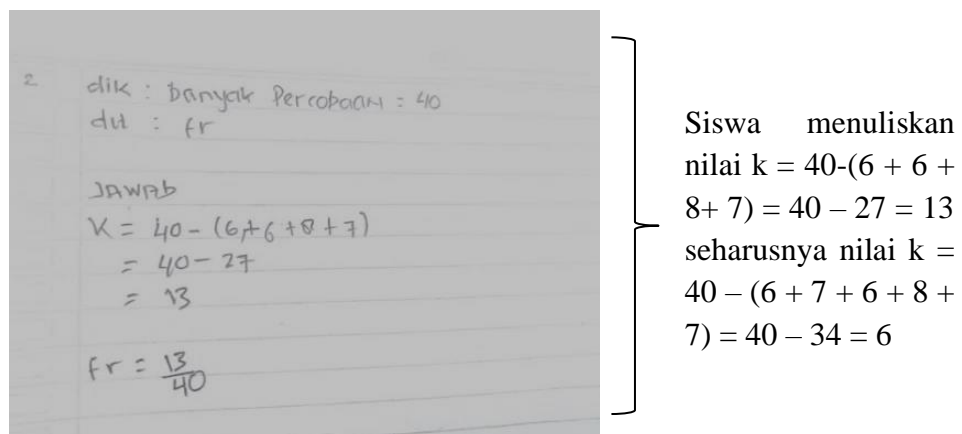 2 dik : banyak Percobaan : 40
dit : fr
JAWAB
K = 40 - (6+6+8+7)
= 40 - 27
= 13
fr = 13/40
Siswa menuliskan
nilai k = 40-(6 + 6 +
8+ 7) = 40 – 27 = 13
seharusnya nilai k =
40 – (6 + 7 + 6 + 8 +
7) = 40 – 34 = 6